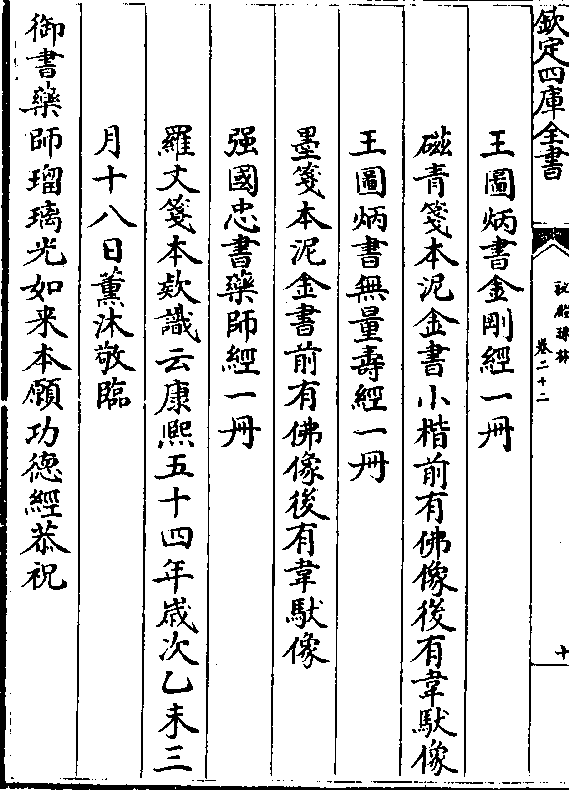 欽定四庫全書
秘殿珠林
卷二十二
十
王圖炳書金剛經一冊
磁青箋本泥金書小楷前有佛像後有韋馱像
王圖炳書無量壽經一冊
墨箋本泥金書前有佛像後有韋馱像
强國忠書藥師經一冊
羅文箋本欵識云康熙五十四年歲次乙未三
月十八日薰沐敬臨
御書藥師瑠璃光如来本願功德經恭祝